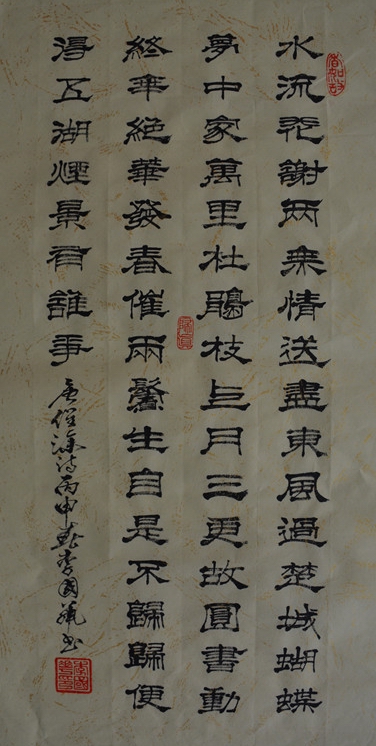 水流花謝兩無情送盡東風過楚城蝴蝶
夢中家萬里杜鵑枝上月三更故圓書動
終年絕華發春催兩鬢生自是不歸歸便
得五湖煙景有誰爭
唐崔塗詩丙申李國書